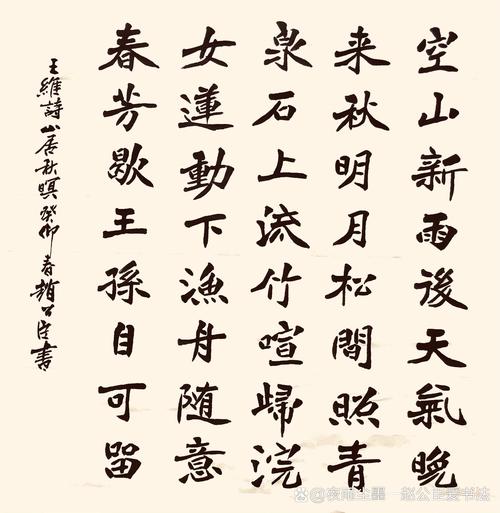 空山新雨後天氣晚
来秋明月松間照青
泉石上流竹喧歸浣
女蓮動下漁舟随意
春芳歇王孫自可留
王維詩山居秋暝癸卯春趙公臣書
赵公臣爱书法